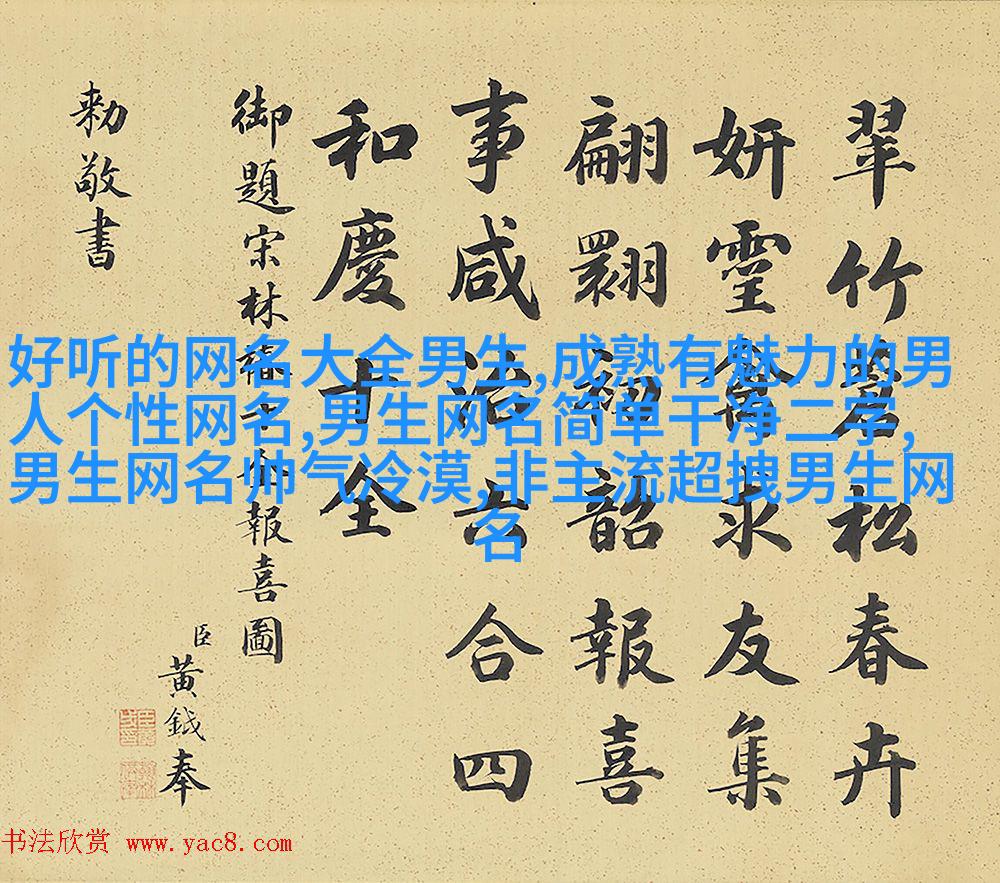 好听的网名大全男生,成熟有魅力的男
人个性网名,男生网名简单干净二字,
男生网名帅气冷漠,非主流超拽男生网
名
翠竹碧松春卉
妍靈禽求友集
翩翾韶報喜
事咸洽六合四
和慶十全
御題宋林椿十全報喜圖
臣黃鉞奉
勅敬書
书法欣赏 www.yac8.com